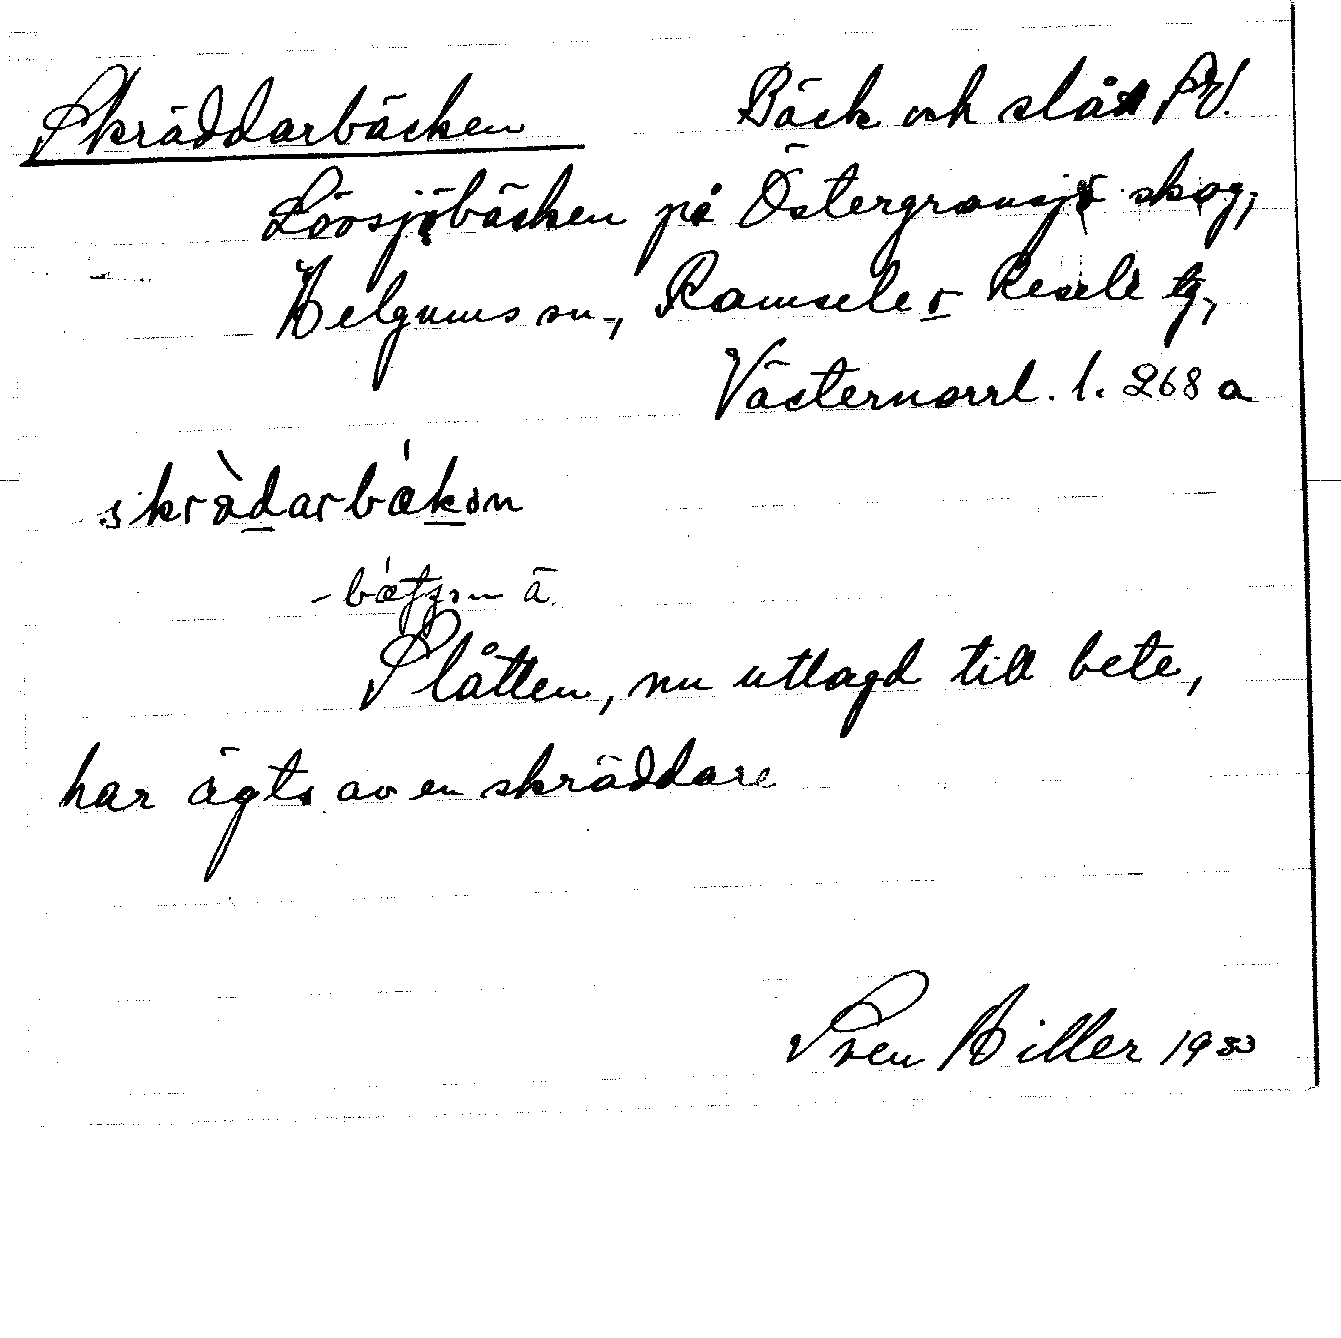 Skräddarbäcken Bäck och slått SV.
Lövsjöbäcken på Östergransjö skog,
Helgums sn., Ramsele o Resele tg,
Västernorrl. l. 268 a
skrädarbäkən
Slåtten, nu utlagd till bete,
har ägts av en skräddare
Sven Hiller 1933